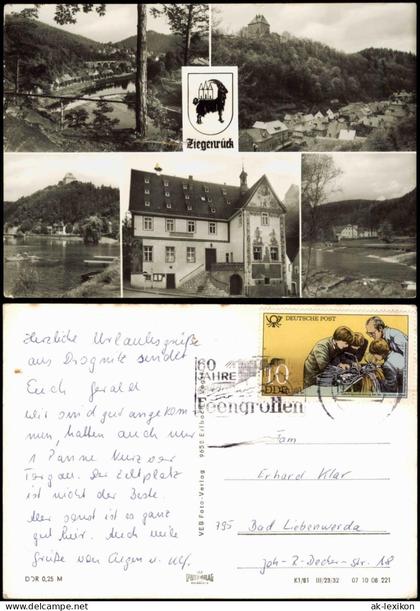 Ziegenrück
Herzliche Urlaubsgrüße
aus Drognitz sendet
Euch Gerald
Wir sind gut angekom
men, hatten auch nur
1 Panne kurz vor
Torgau. Der Zeltplatz
ist nicht der Beste.
Aber sonst ist es ganz
gut hier. Auch viele
Grüße von
DDR 0,25 M
VEB Foto-Verlag 9650
DEUTSCHE POST
10
DDR
60
JAHRE
Feengrotten
Fam
Erhard Klar
795 Bad Liebenwerda
Joh-R-Becher-str. 18
K1/81 III/23/32 07 10 08 221
© ak-ansichtskarten.de/shop
ak-lexikon.de